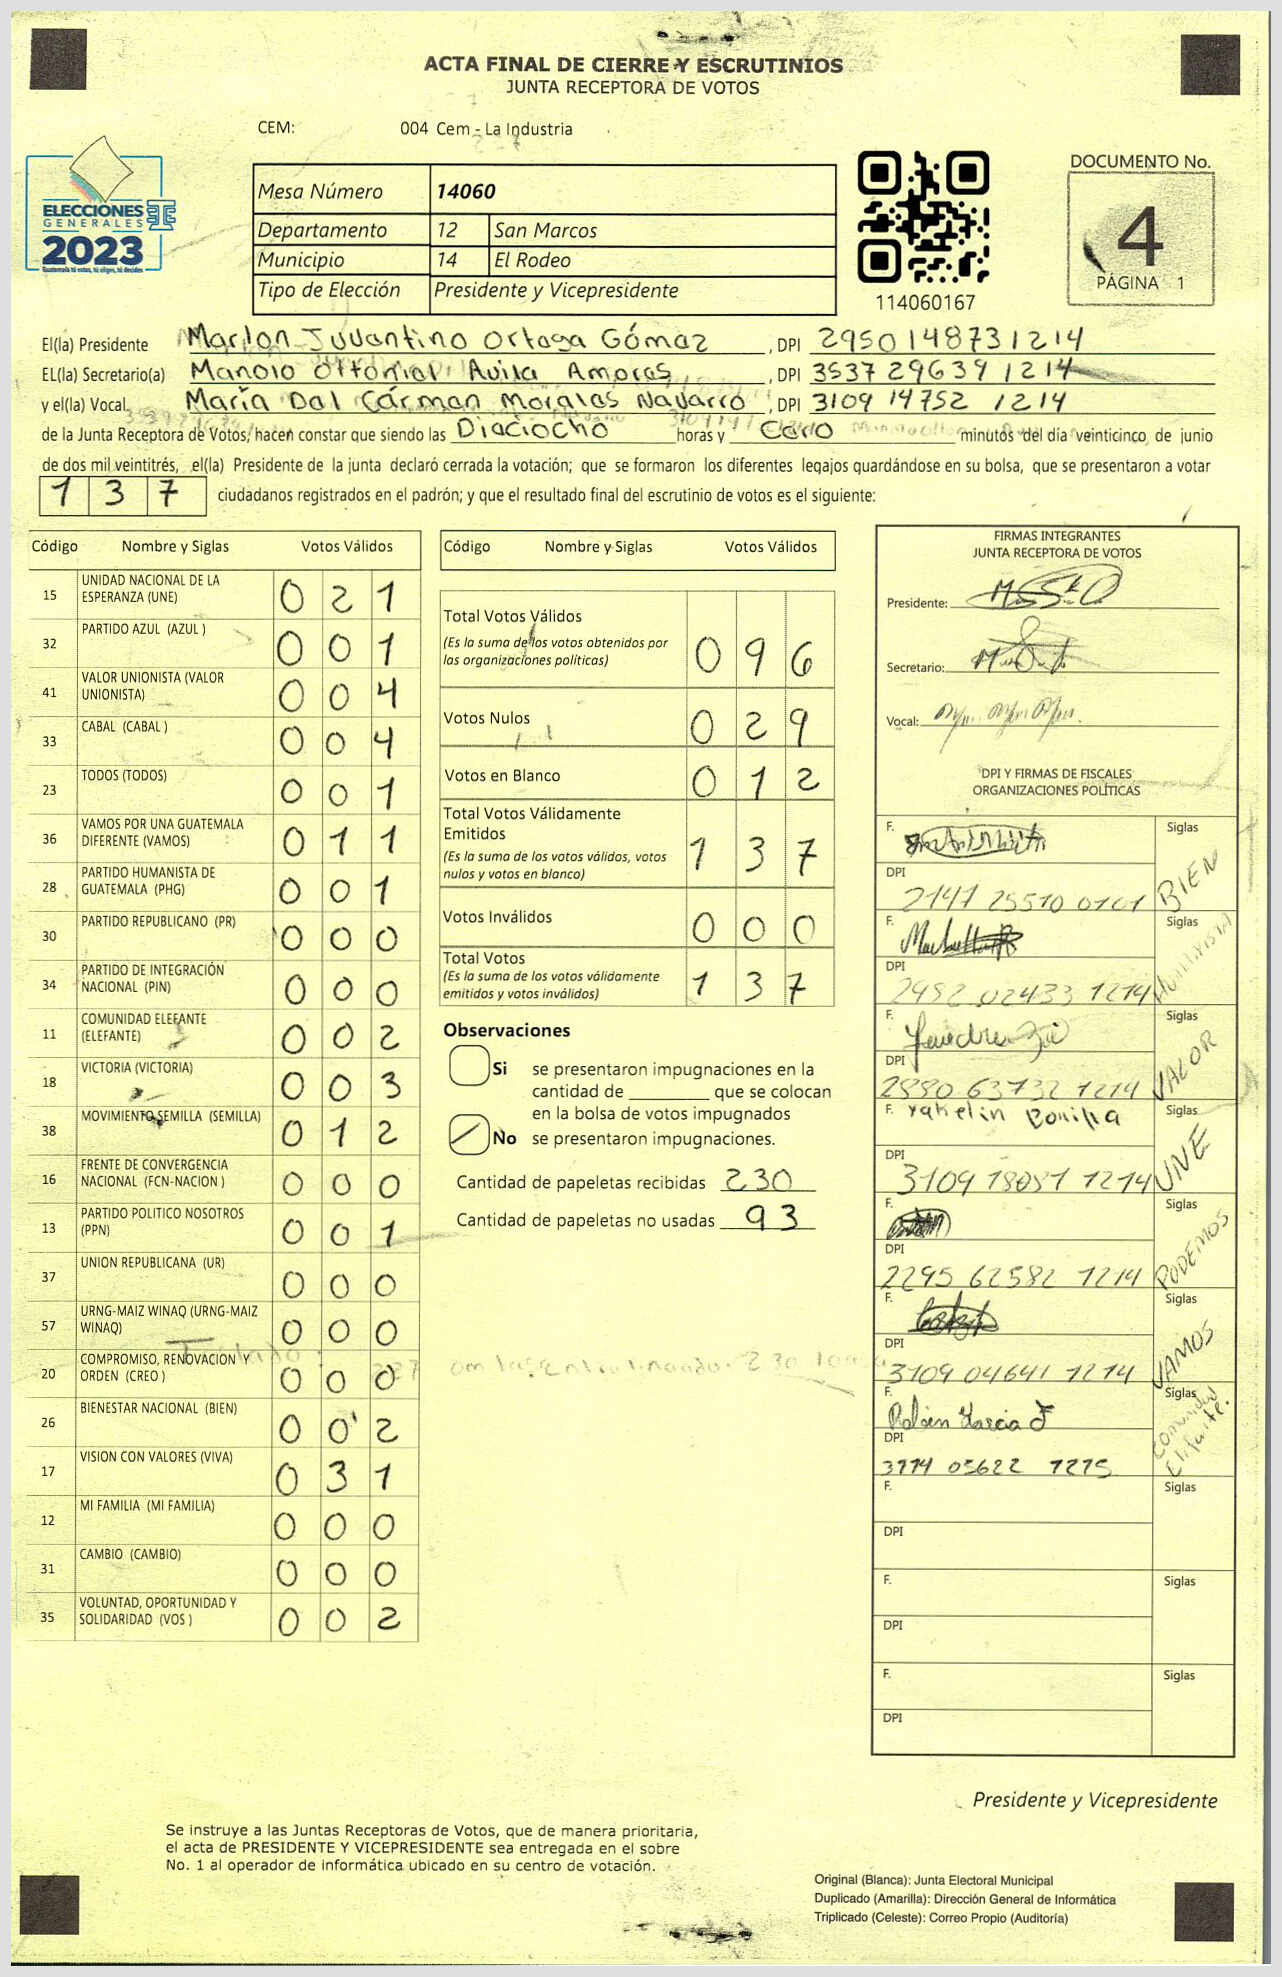 ACTA FINAL DE CIERRE Y ESCRUTINIOS
JUNTA RECEPTORA DE VOTOS
CEM: 004 Cem - La Industria
ELECCIONES
GENERALES
2023
Guatemala tú votas, tú eliges, tú decides
Mesa Número 14060
Departamento 12 San Marcos
Municipio 14 El Rodeo
Tipo de Elección Presidente y Vicepresidente
114060167
DOCUMENTO No.
4
PÁGINA 1
El(la) Presidente Marlon Juvantino Ortaga Gómaz, DPI 2950148731214
EL(la) Secretario(a) Manolo Ottoniel Avila Ampras, DPI 3537 29639 1214
y el(la) Vocal María Dal Cárman Moralas Navarro, DPI 3109 14752 1214
de la Junta Receptora de Votos, hacen constar que siendo las Diaciocho horas y Caro minutos del día veinticinco, de junio
de dos mil veintitrés, el(la) Presidente de la junta declaró cerrada la votación; que se formaron los diferentes legajos quardándose en su bolsa, que se presentaron a votar
1 3 7 ciudadanos registrados en el padrón; y que el resultado final del escrutinio de votos es el siguiente:
Código Nombre y Siglas Votos Válidos
15 UNIDAD NACIONAL DE LA ESPERANZA (UNE) 0 2 1
32 PARTIDO AZUL (AZUL ) 0 0 1
41 VALOR UNIONISTA (VALOR UNIONISTA) 0 0 4
33 CABAL (CABAL ) 0 0 4
23 TODOS (TODOS) 0 0 1
36 VAMOS POR UNA GUATEMALA DIFERENTE (VAMOS) 0 1 1
28 PARTIDO HUMANISTA DE GUATEMALA (PHG) 0 0 1
30 PARTIDO REPUBLICANO (PR) 0 0 0
34 PARTIDO DE INTEGRACIÓN NACIONAL (PIN) 0 0 0
11 COMUNIDAD ELEFANTE (ELEFANTE) 0 0 2
18 VICTORIA (VICTORIA) 0 0 3
38 MOVIMIENTO SEMILLA (SEMILLA) 0 1 2
16 FRENTE DE CONVERGENCIA NACIONAL (FCN-NACION ) 0 0 0
13 PARTIDO POLITICO NOSOTROS (PPN) 0 0 1
37 UNION REPUBLICANA (UR) 0 0 0
57 URNG-MAIZ WINAQ (URNG-MAIZ WINAQ) 0 0 0
20 COMPROMISO, RENOVACION Y ORDEN (CREO ) 0 0 0
26 BIENESTAR NACIONAL (BIEN) 0 0 2
17 VISION CON VALORES (VIVA) 0 3 1
12 MI FAMILIA (MI FAMILIA) 0 0 0
31 CAMBIO (CAMBIO) 0 0 0
35 VOLUNTAD, OPORTUNIDAD Y SOLIDARIDAD (VOS ) 0 0 2
Código Nombre y Siglas Votos Válidos
Total Votos Válidos
(Es la suma de los votos obtenidos por
las organizaciones políticas) 0 9 6
Votos Nulos 0 2 9
Votos en Blanco 0 1 2
Total Votos Válidamente
Emitidos
(Es la suma de los votos válidos, votos
nulos y votos en blanco) 1 3 7
Votos Inválidos 0 0 0
Total Votos
(Es la suma de los votos válidamente
emitidos y votos inválidos) 1 3 7
Observaciones
Si se presentaron impugnaciones en la
cantidad de ________ que se colocan
en la bolsa de votos impugnados
No se presentaron impugnaciones.
Cantidad de papeletas recibidas 230
Cantidad de papeletas no usadas 93
FIRMAS INTEGRANTES
JUNTA RECEPTORA DE VOTOS
Presidente:
Secretario:
Vocal:
DPI Y FIRMAS DE FISCALES
ORGANIZACIONES POLÍTICAS
F. Siglas
DPI 2141 25510 0101 BIEN
F. Siglas
DPI 2982 02433 1214
F. Siglas
DPI 2880 63732 1214 VALOR
F. Yakelin Bonilla Siglas
DPI 3109 18081 1214 UNE
F. Siglas
DPI 2295 62582 1214 PODEMOS
F. Siglas
DPI 3109 04641 1214 VAMOS
F. Rubén Garcia F Siglas
DPI 3114 05622 1215 Comunidad Elefante.
F. Siglas
DPI
F. Siglas
DPI
F. Siglas
DPI
Presidente y Vicepresidente
Se instruye a las Juntas Receptoras de Votos, que de manera prioritaria,
el acta de PRESIDENTE Y VICEPRESIDENTE sea entregada en el sobre
No. 1 al operador de informática ubicado en su centro de votación.
Original (Blanca): Junta Electoral Municipal
Duplicado (Amarilla): Dirección General de Informática
Triplicado (Celeste): Correo Propio (Auditoría)